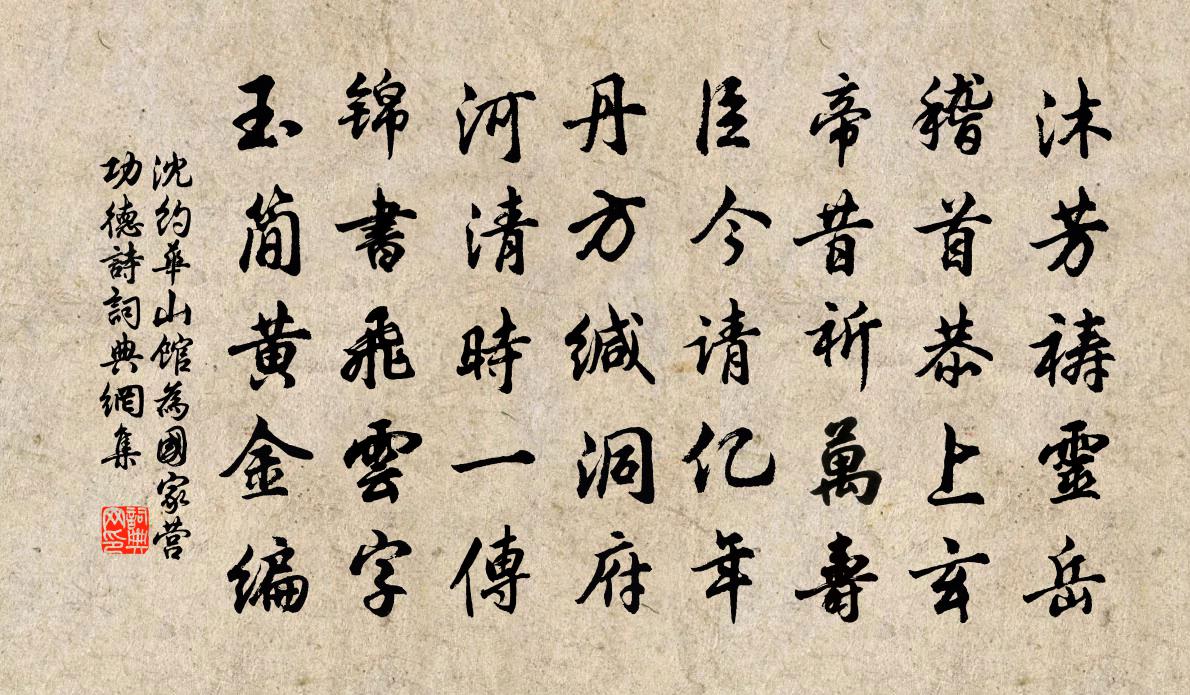 沐芳禱靈岳
稽首恭上玄
帝昔祈萬壽
臣今请亿年
丹方缄洞府
河清時一傳
锦書飛雲字
玉简黄金编
沈约華山馆為國家营
功德詩詞典網集
詞典网印